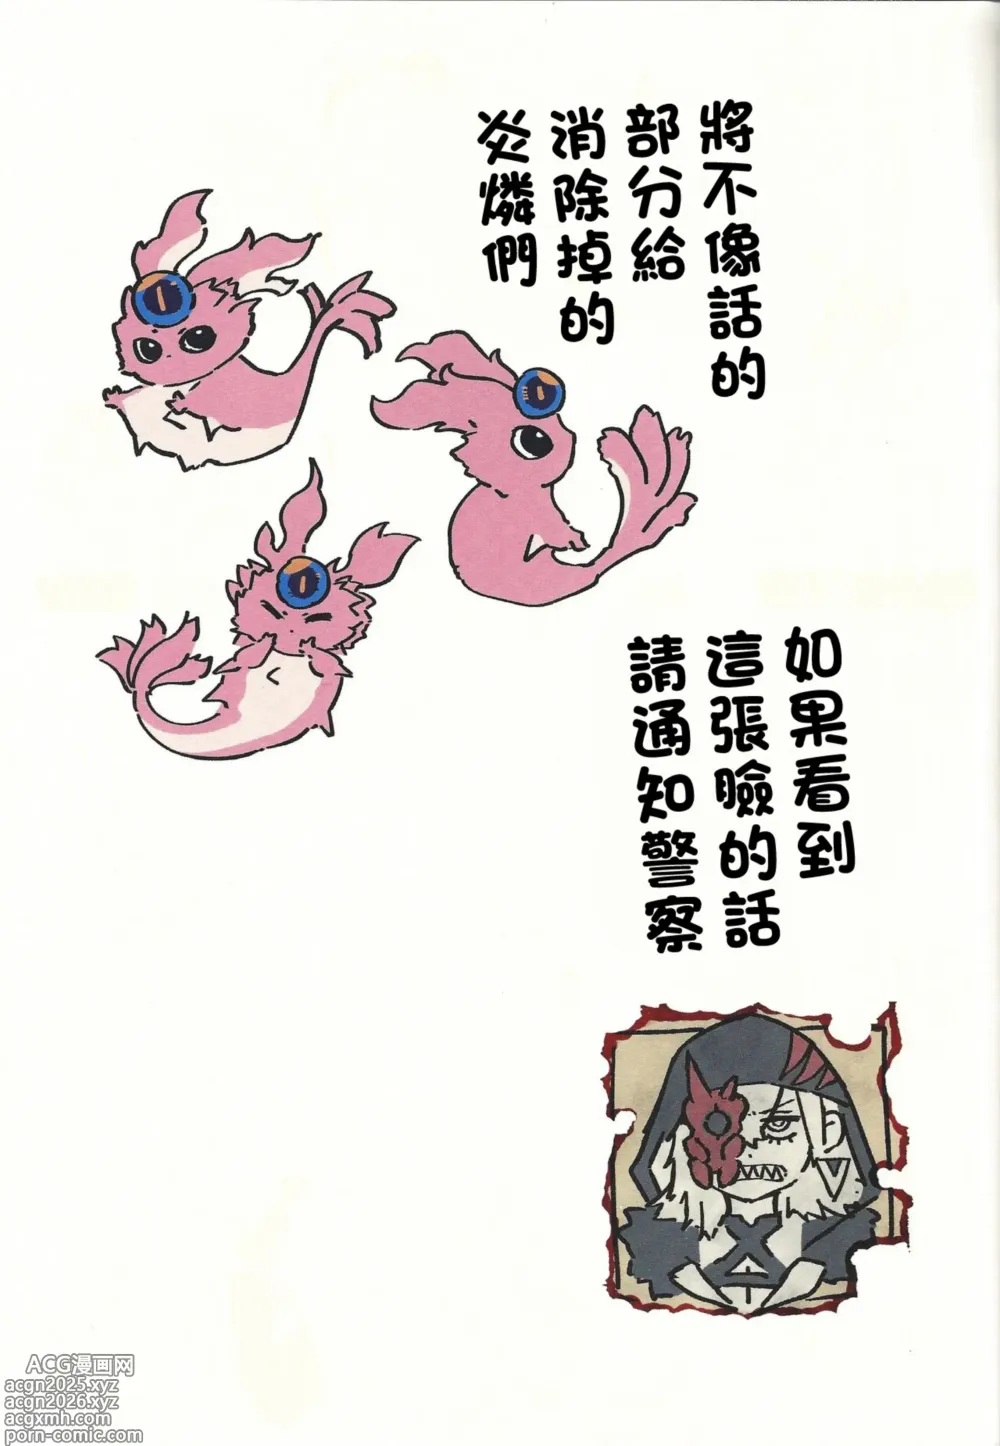 將不像話的
部分給
消除掉的
炎燐們
如果看到
這張臉的話
請通知警察
ACG漫画网
acgn2025.xyz
acgn2026.xyz
acgxmh.com
porn-comic.com